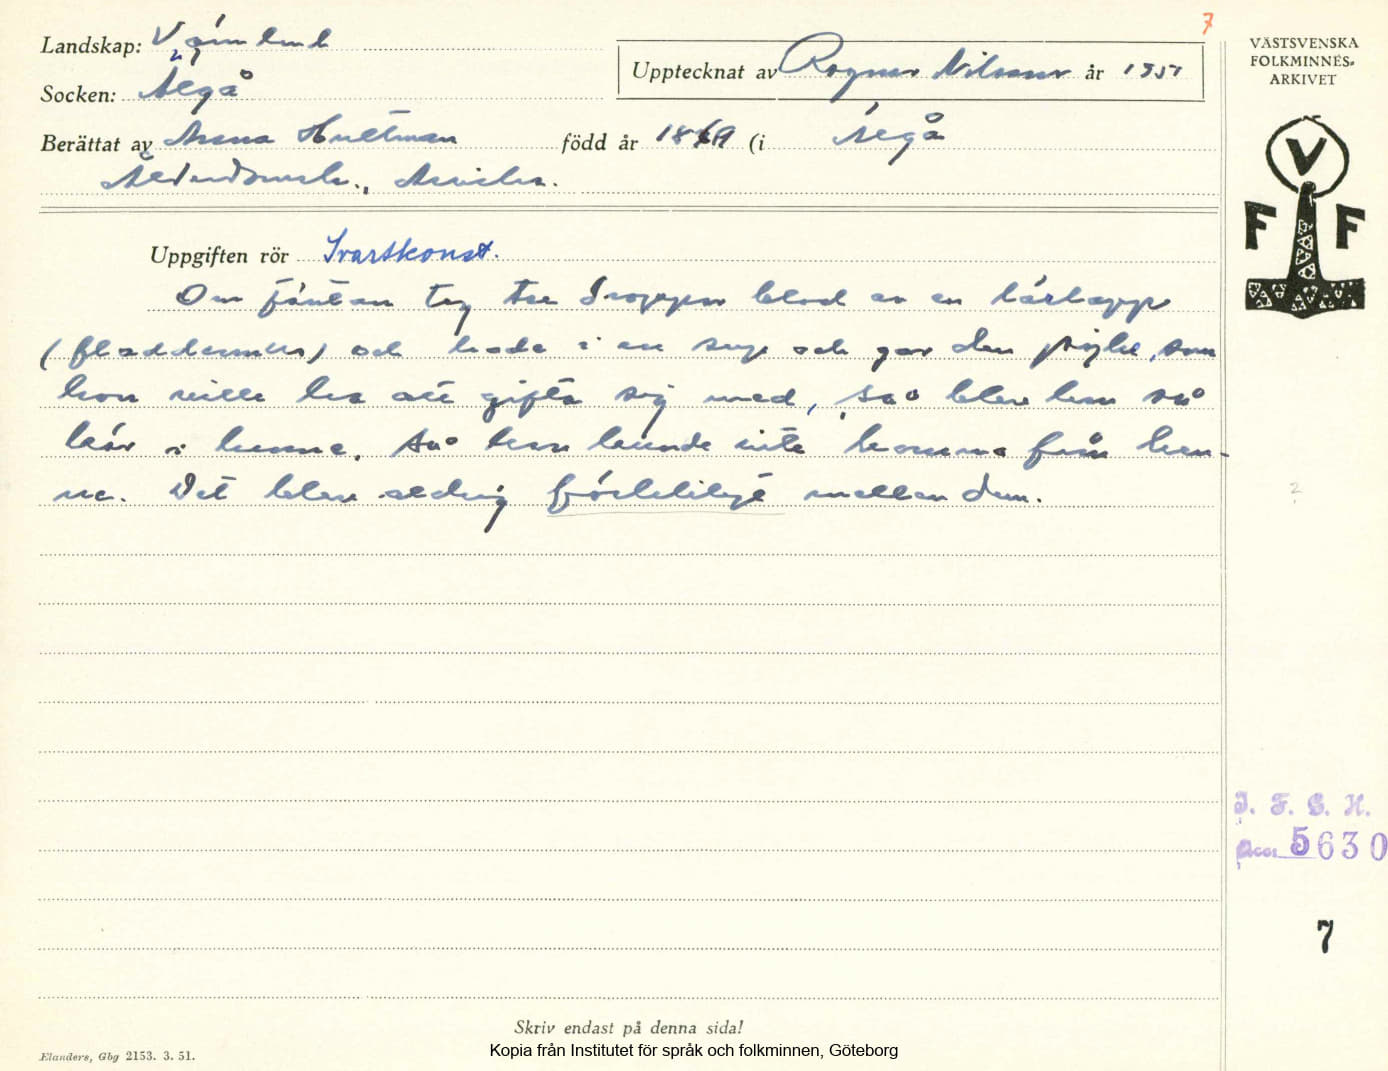 7
Landskap: Värmland
Socken: Älgå
Upptecknat av Ragnar Nilsson år 1951
Berättat av Anna Hultman född år 1869 (i Älgå
Ålderdomsh., Arvika.
Uppgiften rör Svartkonst.
Om fäntan tog tre droppar blod av en lärlapp
(fladdermus) och hade i en sup och gav den pojke, som
hon ville ha att gifta sig med, så blev han så
kär i henne, så han kunde inte komma från hen-
ne. Det blev aldrig mellan dem.
VÄSTSVENSKA
FOLKMINNES-
ARKIVET
V
F F
2
I. F. G. H.
acc. 5630
7
Skriv endast på denna sida!
Elanders, Gbg 2153. 3. 51.
Kopia från Institutet för språk och folkminnen, Göteborg